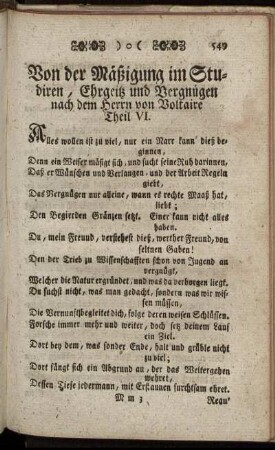 )o( 549
Von der Mäßigung im Stu-
diren, Ehrgeitz und Vergnügen
nach dem Herrn von Voltaire
Theil VI.
Alles wollen ist zu viel, nur ein Narr kann dieß be-
ginnen,
Denn ein Weiser mäßigt sich, und sucht seine Ruh darinnen,
Daß er Wünschen und Verlangen, und der Arbeit Regeln
giebt,
Das Vergnügen nur alleine, wann es rechte Maaß hat,
liebt;
Den Begierden Gränzen setzt. Einer kann nicht alles
haben.
Du, mein Freund, verstehest dieß, werther Freund, von
seltnen Gaben!
Den der Trieb zu Wissenschafften schon von Jugend an
vergnügt,
Welcher die Natur ergründet, und was da verborgen liegt.
Du suchst nicht, was man gedacht, sondern was wir wis-
sen müssen,
Die Vernunft begleitet dich, folge deren weisen Schlüssen.
Forsche immer mehr und weiter, doch setz deinem Lauf
ein Ziel.
Dort bey dem, was sonder Ende, halt und grüble nicht
zu viel;
Dort fängt sich ein Abgrund an, der das Weitergehen
wehret,
Dessen Tiefe jedermann, mit Erstaunen furchtsam ehret.
M m 3 Regu-